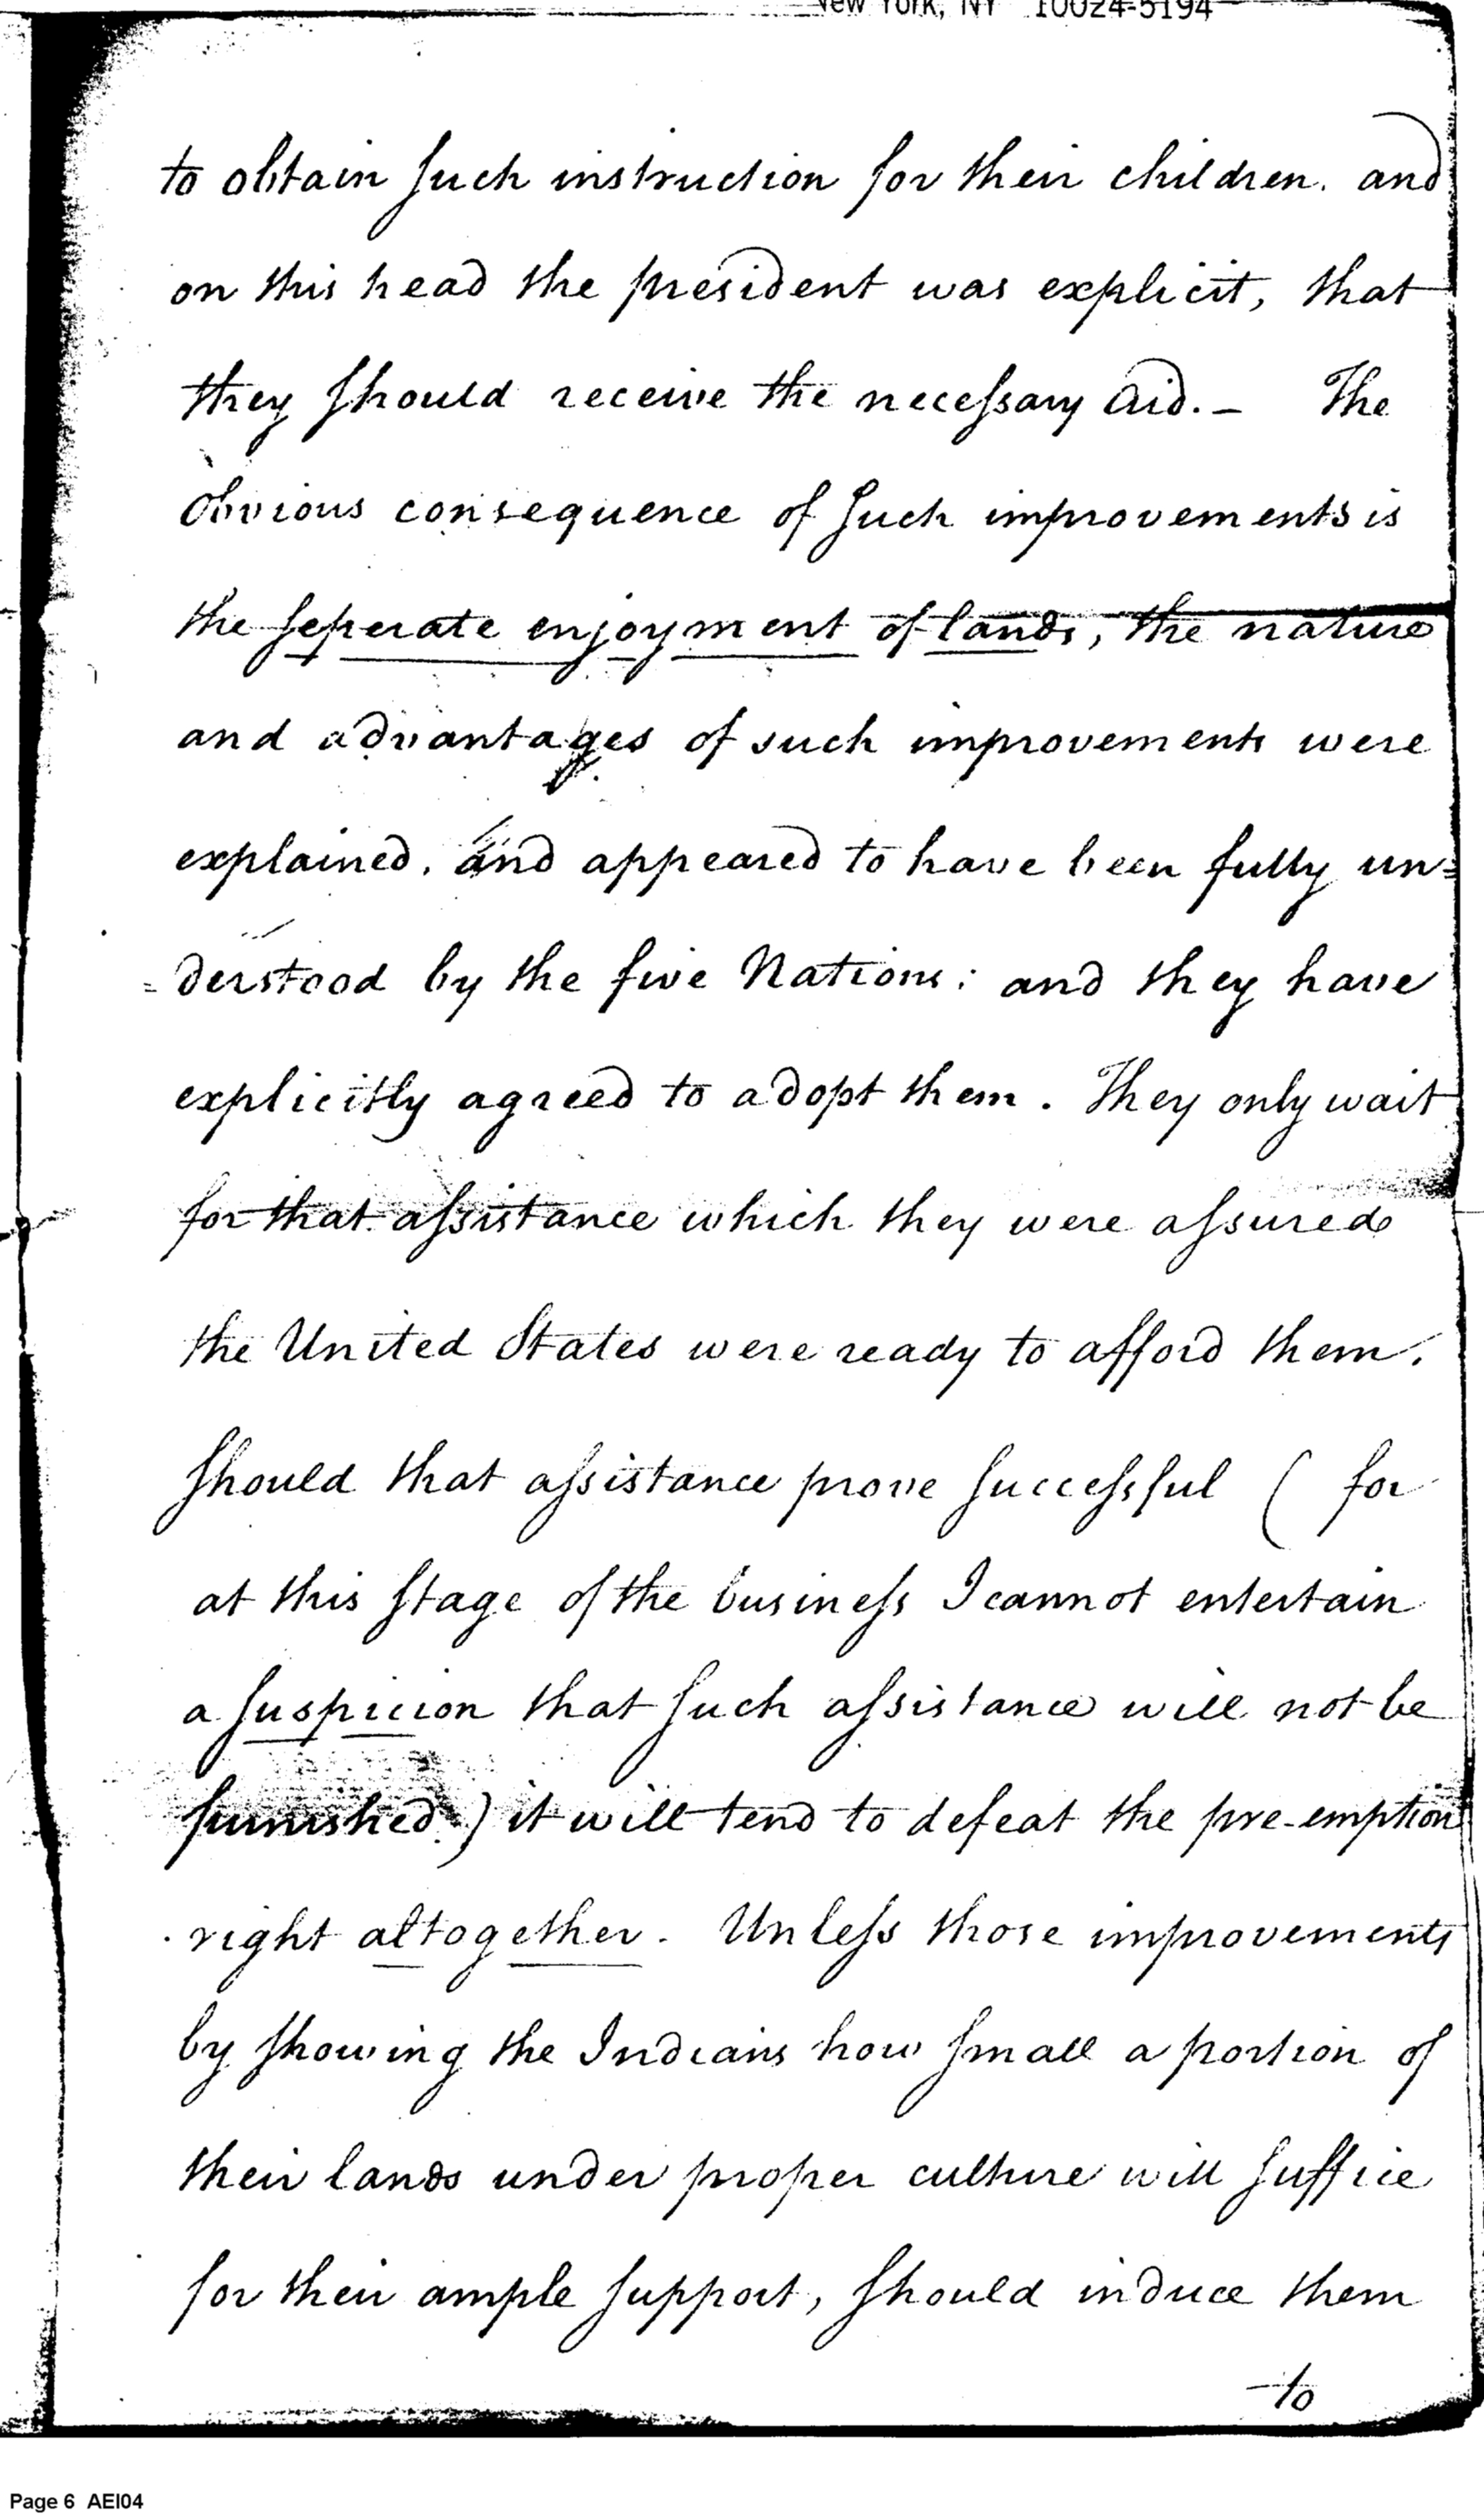 New York, NY 10024-5194
to obtain such instruction for their children. and
on this head the president was explicit, that
they should receive the necessary aid. – The
Obvious consequence of such improvements is
the seperate enjoyment of lands, the nature
and advantages of such improvements were
explained, and appeared to have been fully un=
=derstood by the five Nations; and they have
explicitly agreed to adopt them. They only wait
for that assistance which they were assured
the United States were ready to afford them.
Should that assistance prove successful ( for
at this stage of the business I cannot entertain
a suspicion that such assistance will not be
furnished ) it will tend to defeat the pre-emption
right altogether. Unless those improvements
by showing the Indians how small a portion of
their lands under proper culture will suffice
for their ample support, should induce them
to
Page 6 AEI04